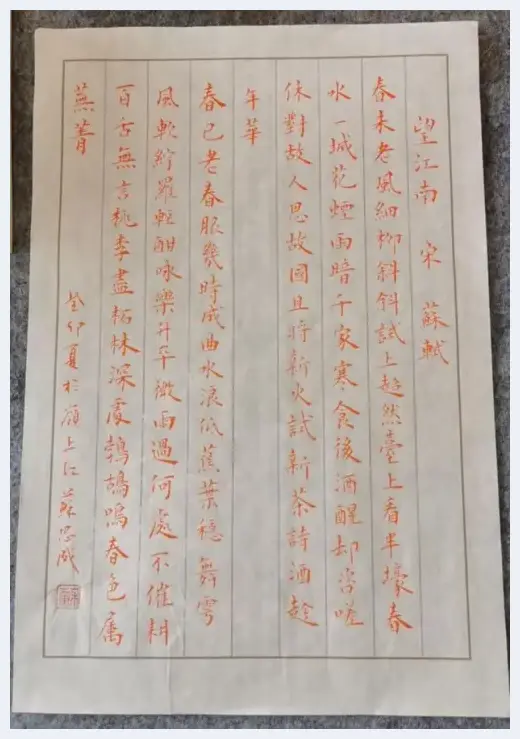 望江南 宋 蘇軾
春未老風細柳斜斜試上超然臺上看半壕春
水一城花煙雨暗千家寒食後酒醒却咨嗟
休對故人思故國且將新火試新茶詩酒趁
年華
春已老春服幾時成曲水浪低蕉葉穩舞雩
風軟紵羅輕酣咏樂升平微雨過何處不催耕
百舌無言桃李盡柘林深處鵓鴣鳴春色属
蕪菁 癸卯夏於 上江